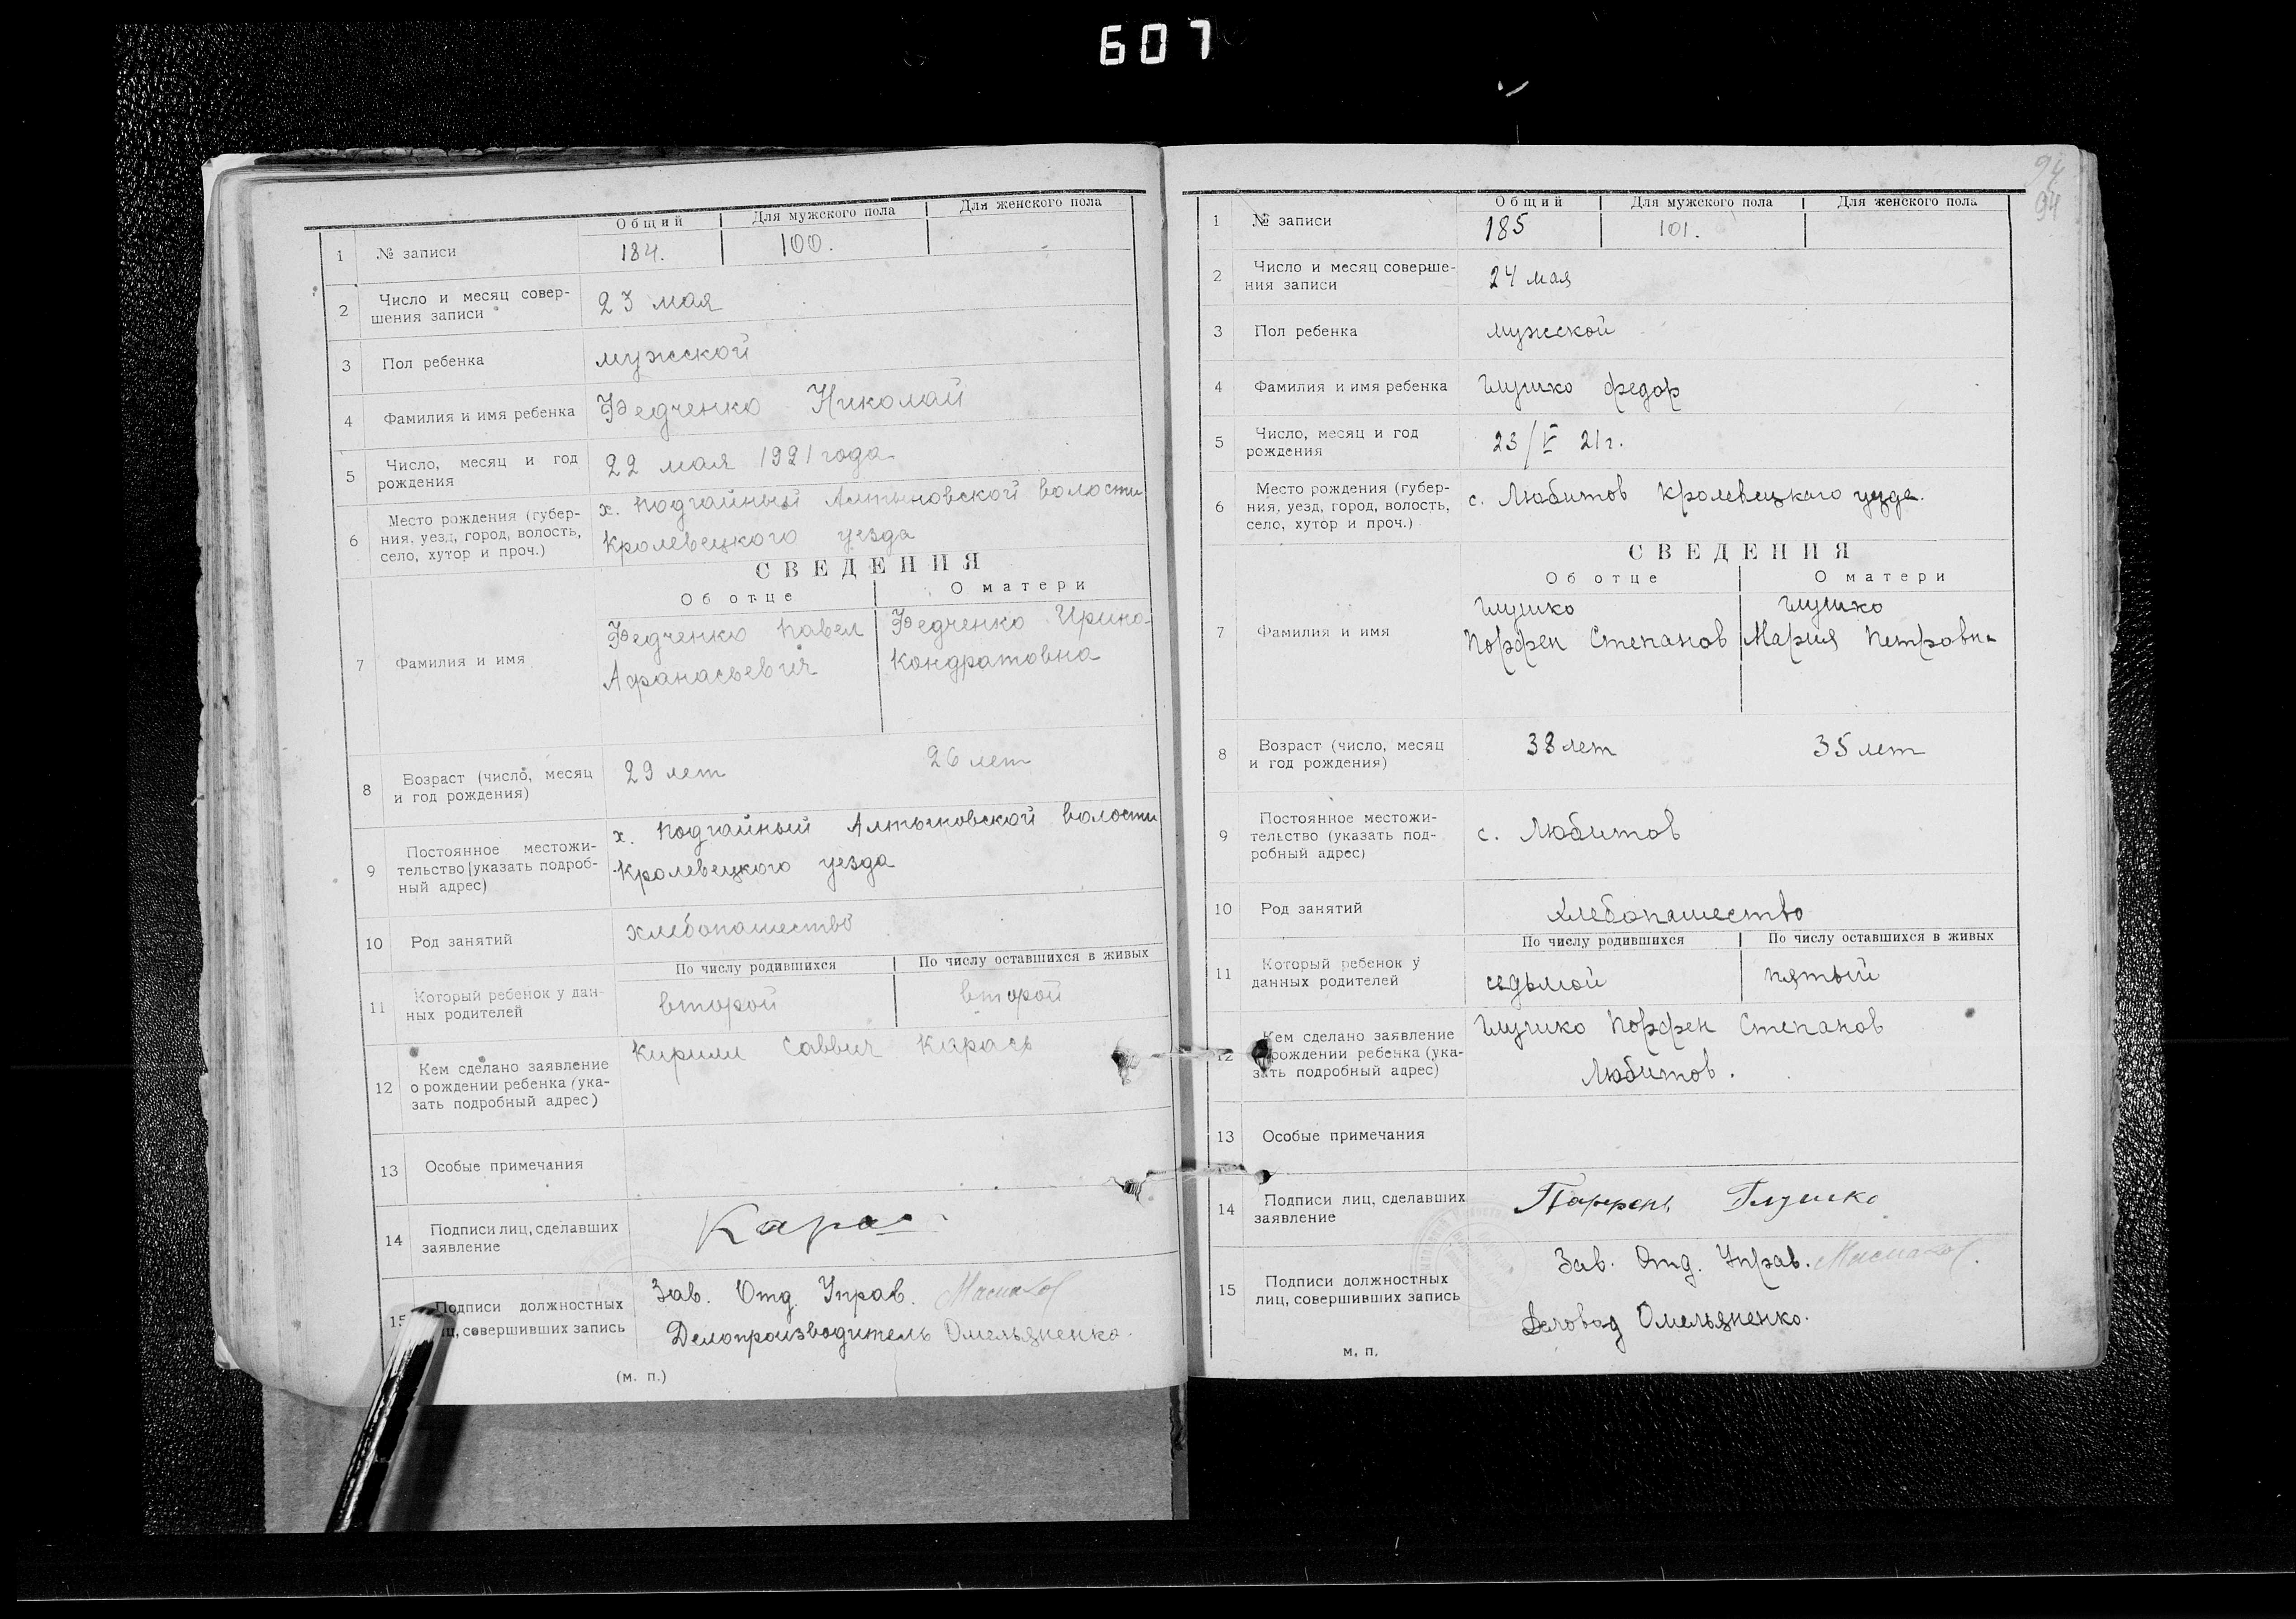 607
Общий Для мужского пола Для женского пола
1 № записи 184. 100.
2 Число и месяц совер-
шения записи 23 мая
3 Пол ребенка мужской
4 Фамилия и имя ребенка Федченко Николай
5 Число, месяц и год
рождения 22 мая 1921 года
6 Место рождения (губер-
ния, уезд, город, волость,
село, хутор и проч.)
х. Подгайный Алтыновской волости
Кролевецкого уезда
СВЕДЕНИЯ
Об отце О матери
7 Фамилия и имя
Федченко Павел Федченко Ирина
Афанасьевич Кондратовна
8 Возраст (число, месяц
и год рождения) 29 лет 26 лет
9 Постоянное местожи-
тельство (указать подроб-
ный адрес)
х. Подгайный Алтыновской волости
Кролевецкого уезда
10 Род занятий хлебопашество
По числу родившихся По числу оставшихся в живых
11 Который ребенок у дан-
ных родителей второй второй
12 Кем сделано заявление
о рождении ребенка (ука-
зать подробный адрес)
Кирилл Саввич Карась
13 Особые примечания
14 Подписи лиц, сделавших
заявление Карас
15 Подписи должностных
лиц, совершивших запись
Зав. Отд. Управ.
Делопроизводитель Омельяненко.
(м. п.)
94
94
Общий Для мужского пола Для женского пола
1 № записи 185 101.
2 Число и месяц соверше-
ния записи 24 мая
3 Пол ребенка мужской
4 Фамилия и имя ребенка Глушко Федор
5 Число, месяц и год
рождения 23/V 21 г.
6 Место рождения (губер-
ния, уезд, город, волость,
село, хутор и проч.)
с. Любитов Кролевецкого уезда.
СВЕДЕНИЯ
Об отце О матери
7 Фамилия и имя
Глушко Глушко
Порфен Степанов Мария Петровна
8 Возраст (число, месяц
и год рождения) 38 лет 35 лет
9 Постоянное местожи-
тельство (указать под-
робный адрес) с. Любитов
10 Род занятий хлебопашество
По числу родившихся По числу оставшихся в живых
11 Который ребенок у
данных родителей седьмой пятый
12 Кем сделано заявление
о рождении ребенка (ука-
зать подробный адрес)
Глушко Порфен Степанов
Любитов.
13 Особые примечания
14 Подписи лиц, сделавших
заявление Парфень Глушко
15 Подписи должностных
лиц, совершивших запись
Зав. Отд. Управ.
Деловод Омельяненко.
м. п.